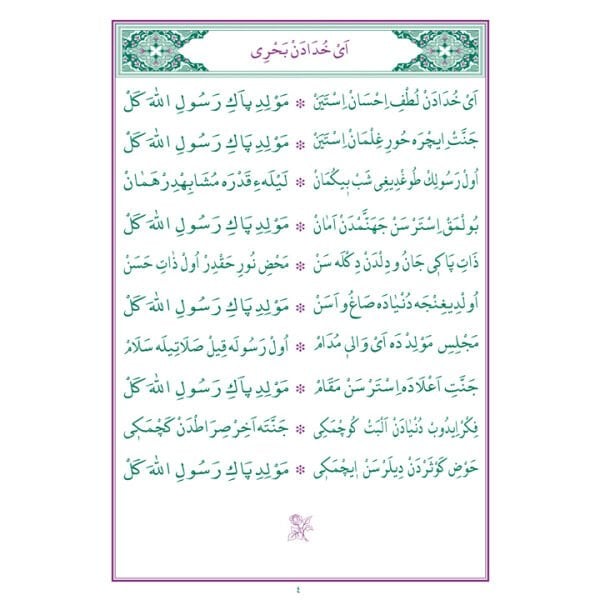 اَىْ خُدَادَنْ بَحْرِى
اَىْ خُدَادَنْ لُطْفِ اِحْسَانْ اِسْتَيَنْ ❊ مَوْلِدِ پَاكِ رَسُولِ اللهَ كَلْ
جَنَّتْ اِيچْرَه حُورِ غِلْمَانْ اِسْتَيَنْ ❊ مَوْلِدِ پَاكِ رَسُولِ اللهَ كَلْ
اُولْ رَسُولِكْ طُوغْدِيغِى شَبْ بِيكُمَانْ ❊ لَيْلَهءِ قَدْرَه مُشَابِهْدِرْ هَمَانْ
بُولْمَقْ اِسْتَرْ سَنْ جَهَنَّمْدَنْ اَمَانْ ❊ مَوْلِدِ پَاكِ رَسُولِ اللهَ كَلْ
ذَاتِ پَاكِى جَانُ و دِلْدَنْ دِكْلَه سَنْ ❊ مَحْضِ نُورِ حَقْدِرْ اُولْ ذَاتِ حَسَنْ
اُولْدِيغِنْجَه دُنْيَادَه صَاغُ و اَسَنْ ❊ مَوْلِدِ پَاكِ رَسُولِ اللهَ كَلْ
مَجْلِسِ مَوْلِدْ دَه اَىْ وَالِى مُدَامْ ❊ اُولْ رَسُولَه قِيلْ صَلَاتِيلَه سَلَامْ
جَنَّتِ اَعْلَادَه اِسْتَرْ سَنْ مَقَامْ ❊ مَوْلِدِ پَاكِ رَسُولِ اللهَ كَلْ
فِكْرْ اِيدُوبْ دُنْيَادَنْ اَلْبَتْ كُوچْمَكِى ❊ جَنَّتَه آخِرْ صِرَاطْدَنْ كَچْمَكِى
حَوْضِ كَوْثَرْدَنْ دِيلَرْ سَنْ اِيچْمَكِى ❊ مَوْلِدِ پَاكِ رَسُولِ اللهَ كَلْ
٤